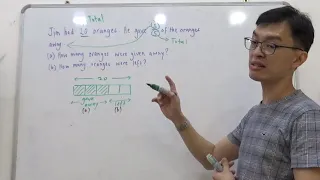 Total
Jim had 20 oranges. He gave of the oranges
away. Total
(a) How many oranges were given away?
(b) How many oranges were left?
20
gave left
away (b)
(a)